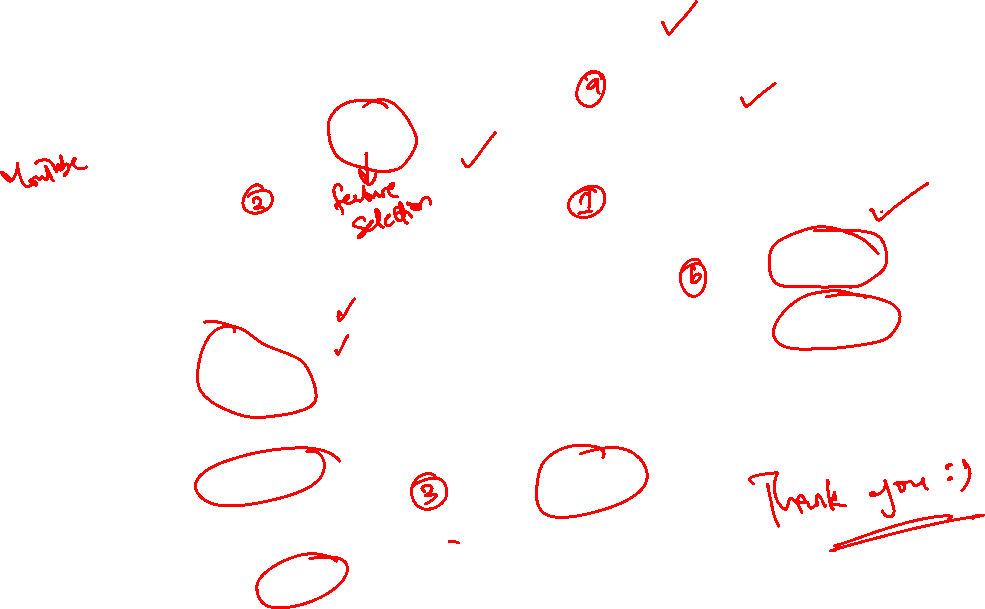 a
YouTube
2
feature
selection
1
b
3
Thank you :)